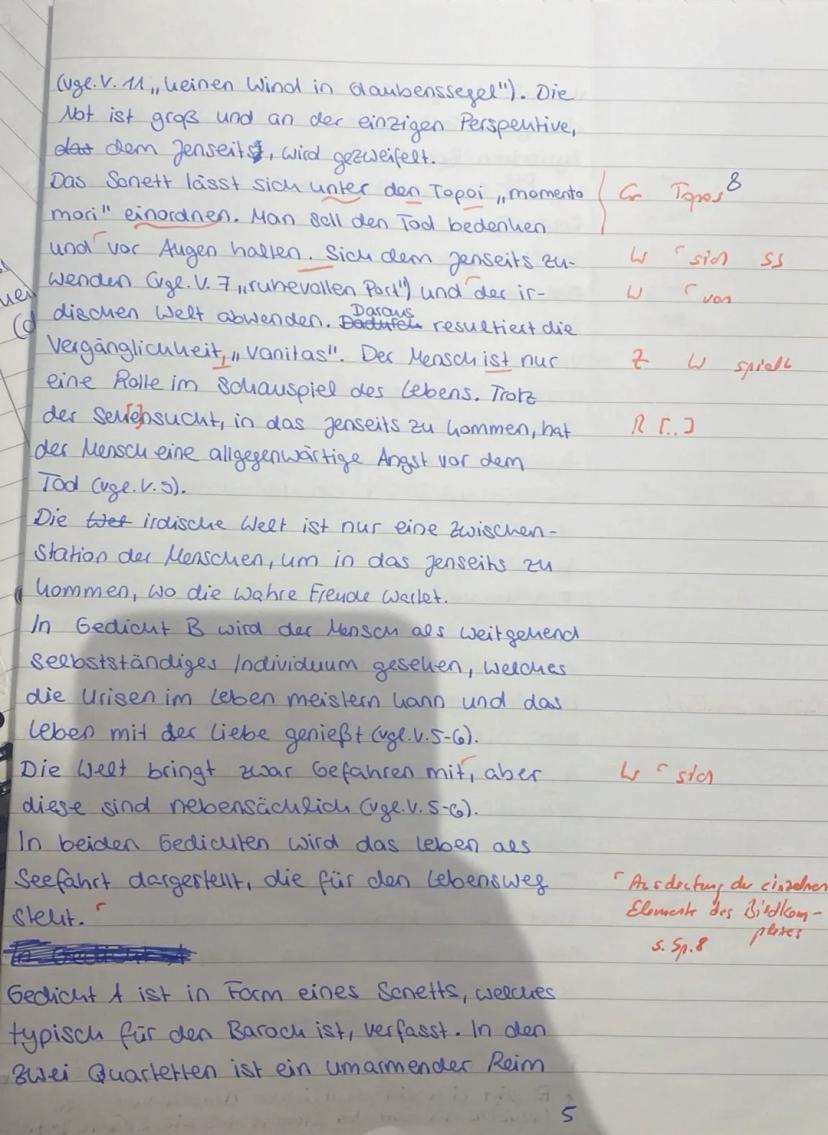 (vgl. V. 11 „keinen Wind in Glaubenssegel"). Die
Not ist groß und an der einzigen Perspektive,
dem Jenseits, wird gezweifelt.
Das Sonett lässt sich unter den Topoi „momento
mori" einordnen. Man soll den Tod bedenken
Gr Topos 8
und vor Augen halten. Sich dem Jenseits zu-
W sich SS
wenden (vgl. V. 7 „ruhevollen Port") und der ir-
W von
dischen Welt abwenden. Daraus resultiert die
Vergänglichkeit, „Vanitas". Der Mensch ist nur
Z W spielt
eine Rolle im Schauspiel des Lebens. Trotz
der Sehensucht, in das Jenseits zu kommen, hat
R [..]
der Mensch eine allgegenwärtige Angst vor dem
Tod (vgl. V. 5).
Die irdische Welt ist nur eine Zwischen-
station der Menschen, um in das Jenseits zu
kommen, wo die wahre Freude wartet.
In Gedicht B wird der Mensch als weitgehend
selbstständiges Individuum gesehen, welches
die Krisen im Leben meistern kann und das
Leben mit der Liebe genießt (vgl. V. 5-6).
Die Welt bringt zwar Gefahren mit, aber
W sich
diese sind nebensächlich (vgl. V. 5-6).
In beiden Gedichten wird das Leben als
Seefahrt dargestellt, die für den Lebensweg
steht.
Ausdeutung der einzelnen
Elemente des Bildkom-
plexes
s. Sp. 8
Gedicht A ist in Form eines Sonetts, welches
typisch für den Barock ist, verfasst. In den
zwei Quartetten ist ein umarmender Reim
5